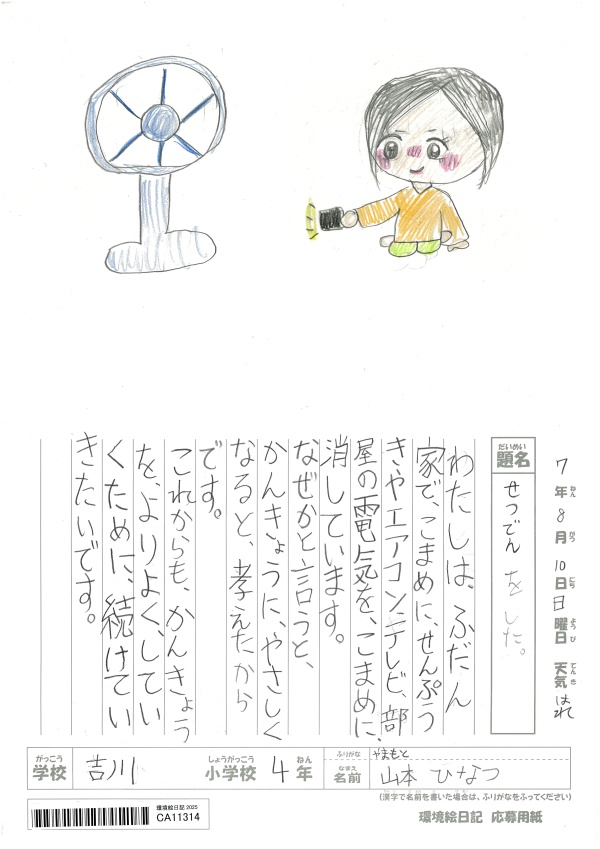 7年ねん8月がつ10日にち日曜日ようび 天気てんきはれ
題名だいめい せつでんをした。
わたしは、ふだん
家で、こまめに、せんぷう
きやエアコン、テレビ、部
屋の電気を、こまめに、
消しています。
なぜかと言うと、
かんきょうに、やさしく
なると、考えたから
です。
これからも、かんきょう
を、よりよく、してい
くために、続けてい
きたいです。
学校がっこう 吉川 小学校しょうがっこう 4年ねん
ふりがな やまもと
名前なまえ 山本 ひなつ
(漢字で名前を書いた場合は、ふりがなをふってください)
環境絵日記 応募用紙
環境絵日記2025
CA11314